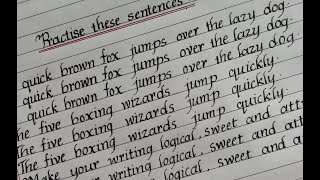 Practise these sentences
quick brown fox jumps over the lazy dog.
quick brown fox jumps over the lazy dog.
quick brown fox jumps over the lazy dog.
The five boxing wizards jump quickly.
The five boxing wizards jump quickly.
The five boxing wizards jump quickly.
Make your writing logical, sweet and att
writing logical, sweet and att
sweet and a